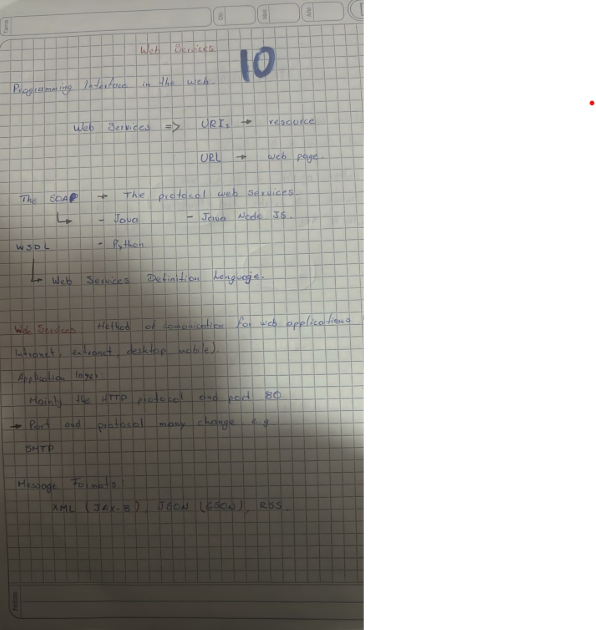 Web Services
10
Programming Interface in the web.
Web Services => URIs → resource
URL → web page.
The SOAP → The protocol web services.
- Java - Java Node JS.
WSDL - Python
Web Services Definition Language.
Web Services Method of comunication for web applications
Intranet, extranet, desktop mobile).
Application layer
Mainly the HTTP protocol and port 80
→ Port and protocol many change e.g
SMTP
Message Formats:
XML (JAX-B), JSON (GSON), RSS.